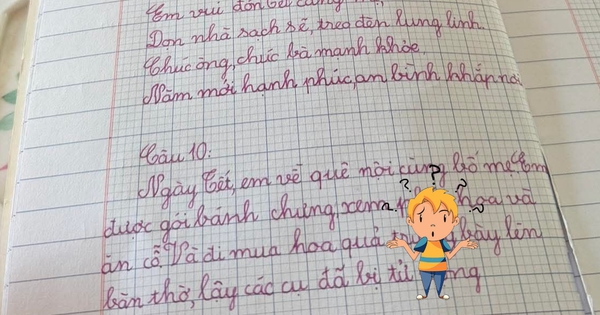 Em vui đón Tết
Dọn nhà sạch sẽ, treo đèn lung linh.
Chúc ông, chúc bà mạnh khỏe.
Năm mới hạnh phúc, an bình khắp nơi
Câu 10:
Ngày Tết, em về quê nội cùng bố mẹ. Em
được gói bánh chưng, xem hoa và
ăn cỗ. Và đi mua hoa quả bày lên
bàn thờ, lấy các cụ đã bị tử